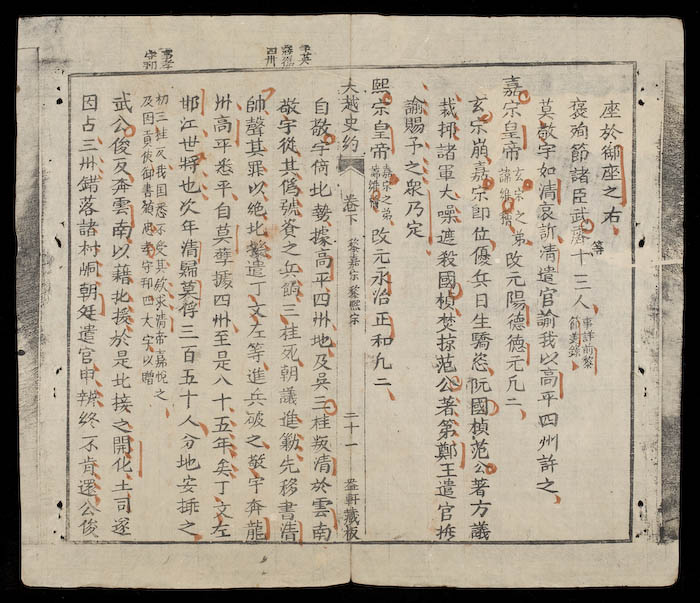 座於御座之右
褒殉節諸臣武等十三人事詳前黎節義錄
莫敬宇如清哀訴清遣官諭我以高平四州許之
嘉宗皇帝玄宗之弟諱維改元陽德德元凡二
玄宗崩嘉宗即位優兵日生驕恣阮國楨范公著方議
裁抑諸軍大噪遮殺國楨焚掠范公著第鄭王遣官撫
諭賜予之眾乃定
熙宗皇帝嘉宗之弟諱維改元永治正和凡二
大越史約 卷下 黎嘉宗黎熙宗 二十一 軒藏板
自敬宇倚北勢據高平四州地及吳三桂叛清於雲南
敬宇從其僞號資之兵餉三桂死朝議進勦先移書清
帥聲其罪以絶北援遣丁文左等進兵破之敬宇奔龍
州高平悉平自莫孽據四州至是八十五年矣丁文左
邯江世將也次年清歸莫俘三百五十人分地安插之
初三桂反我國悉不受其啟求清帝嘉悅之
及因貢使御書頒忠孝守邦四大字以贈
武公俊反奔雲南以藉北援於是北接之開化土司遂
因占三州錯落諸村峒朝廷遣官申辨終不肯還公俊